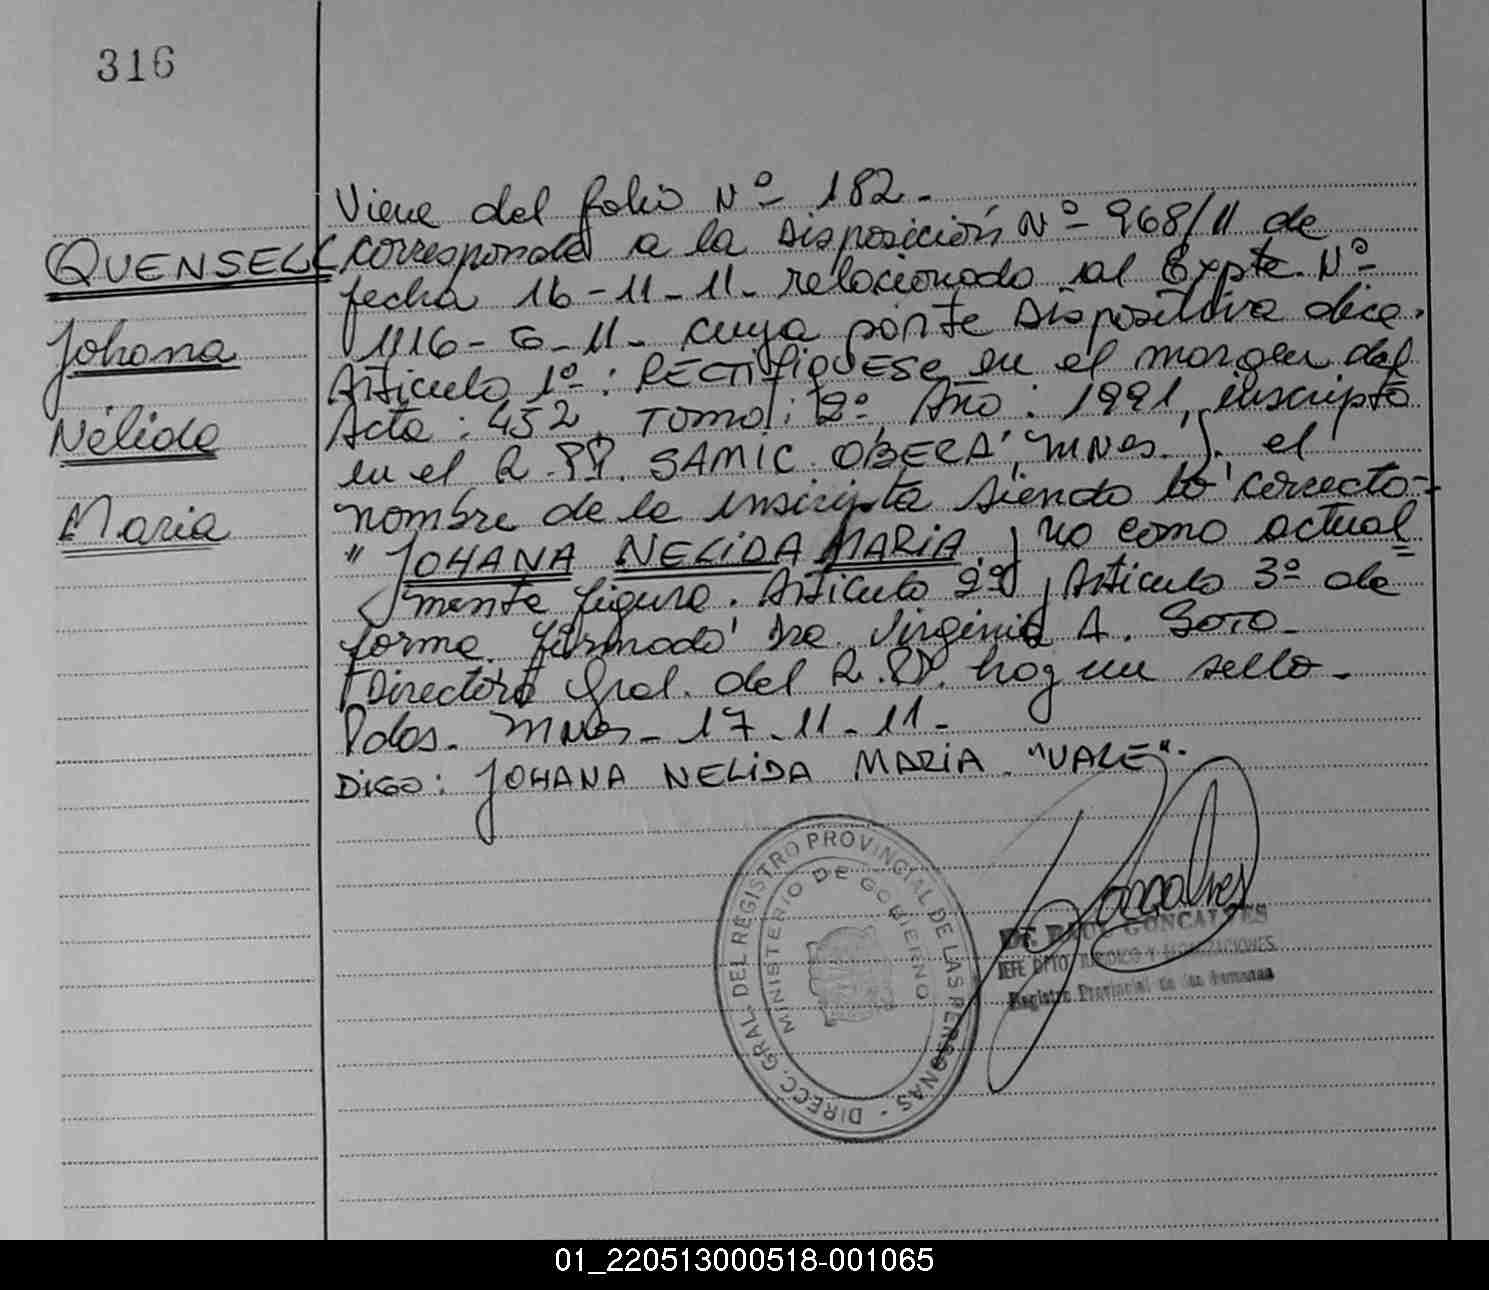 316
QUENSELL
Johana
Nélida
Maria
Viene del folio Nº 182.-
Corresponde a la Disposición Nº 968/11 de
fecha 16-11-11- relacionado al Expte. Nº
1116-G-11- cuya parte Dispositiva dice.
Articulo 1º: RECTIFIQUESE en el margen del
Acta: 452, TOMO: 2º Año: 1991, inscripta
en el R.PP. SAMIC. OBERA', MNES. el
nombre de la inscripta siendo lo correcto-
"JOHANA NELIDA MARIA y no como actual=
mente figura. Articulo 2º y Articulo 3º de
forma. firmado Dra. Virginia A. Soto-
Directora Gral. del R.PP. hay un sello-
Pdas. MNes- 17-11-11-
DIGO: JOHANA NELIDA MARIA. "VALE".
DIRECC. GRAL. DEL REGISTRO PROVINCIAL DE LAS PERSONAS -
MINISTERIO DE GOBIERNO
Goncalves
Dr. RAUL GONCALVES
JEFE DPTO. JURIDICO Y
Registro Provincial de las Personas
01_220513000518-001065